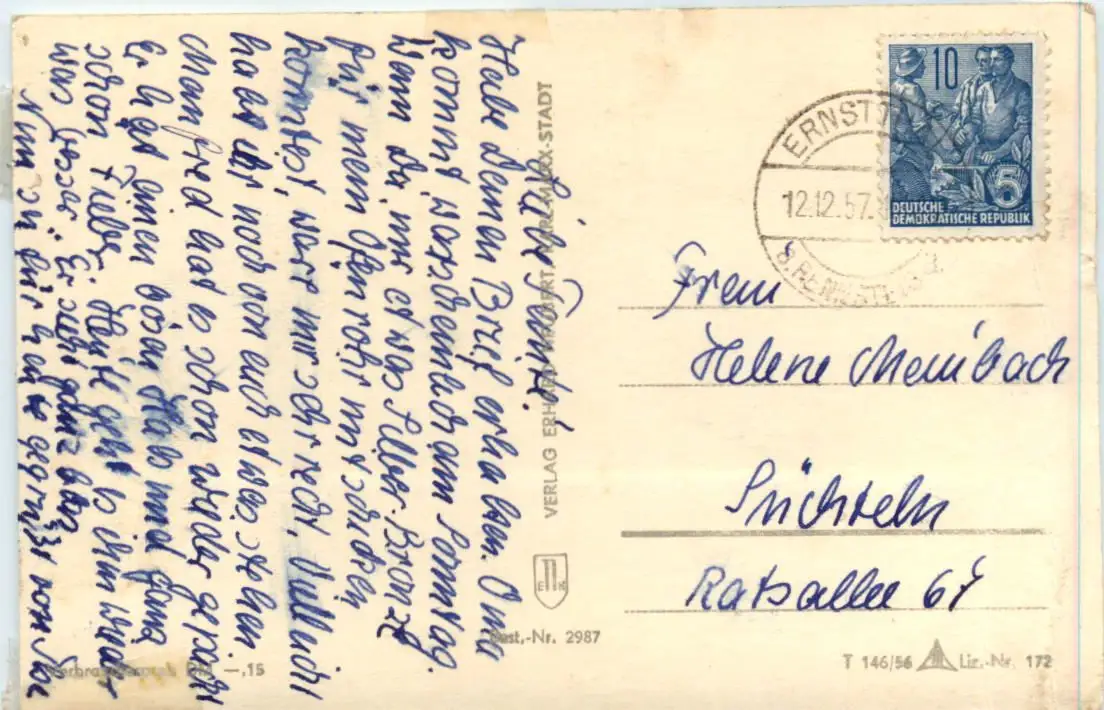 Liebe
Habe Deinen Brief erhalten. Oma
kommt am Sonntag.
Wenn Du mir etwas Silber-Bronze
für mein Ofenrohr mitschicken
könntest, wär mir sehr recht. Vielleicht
habt ihr noch von euch etwas stehen
Manfred hat es schon wieder gepackt
Er hat einen bösen Hals und ganz
schön Fieber. Heute geht es ihm wieder
was besser. Er sieht ganz
Nun sei gegrüßt von
VERLAG ERHARD NEUBERT, KARL-MARX-STADT
EN K
Best.-Nr. 2987
Verbraucherpreis DM —,15
10
5
DEUTSCHE
DEMOKRATISCHE REPUBLIK
ERNSTTHAL
12.12.57.
Frau
Helene Meinbach
Süchteln
Ratsallee 67
T 146/56 Liz.-Nr. 172